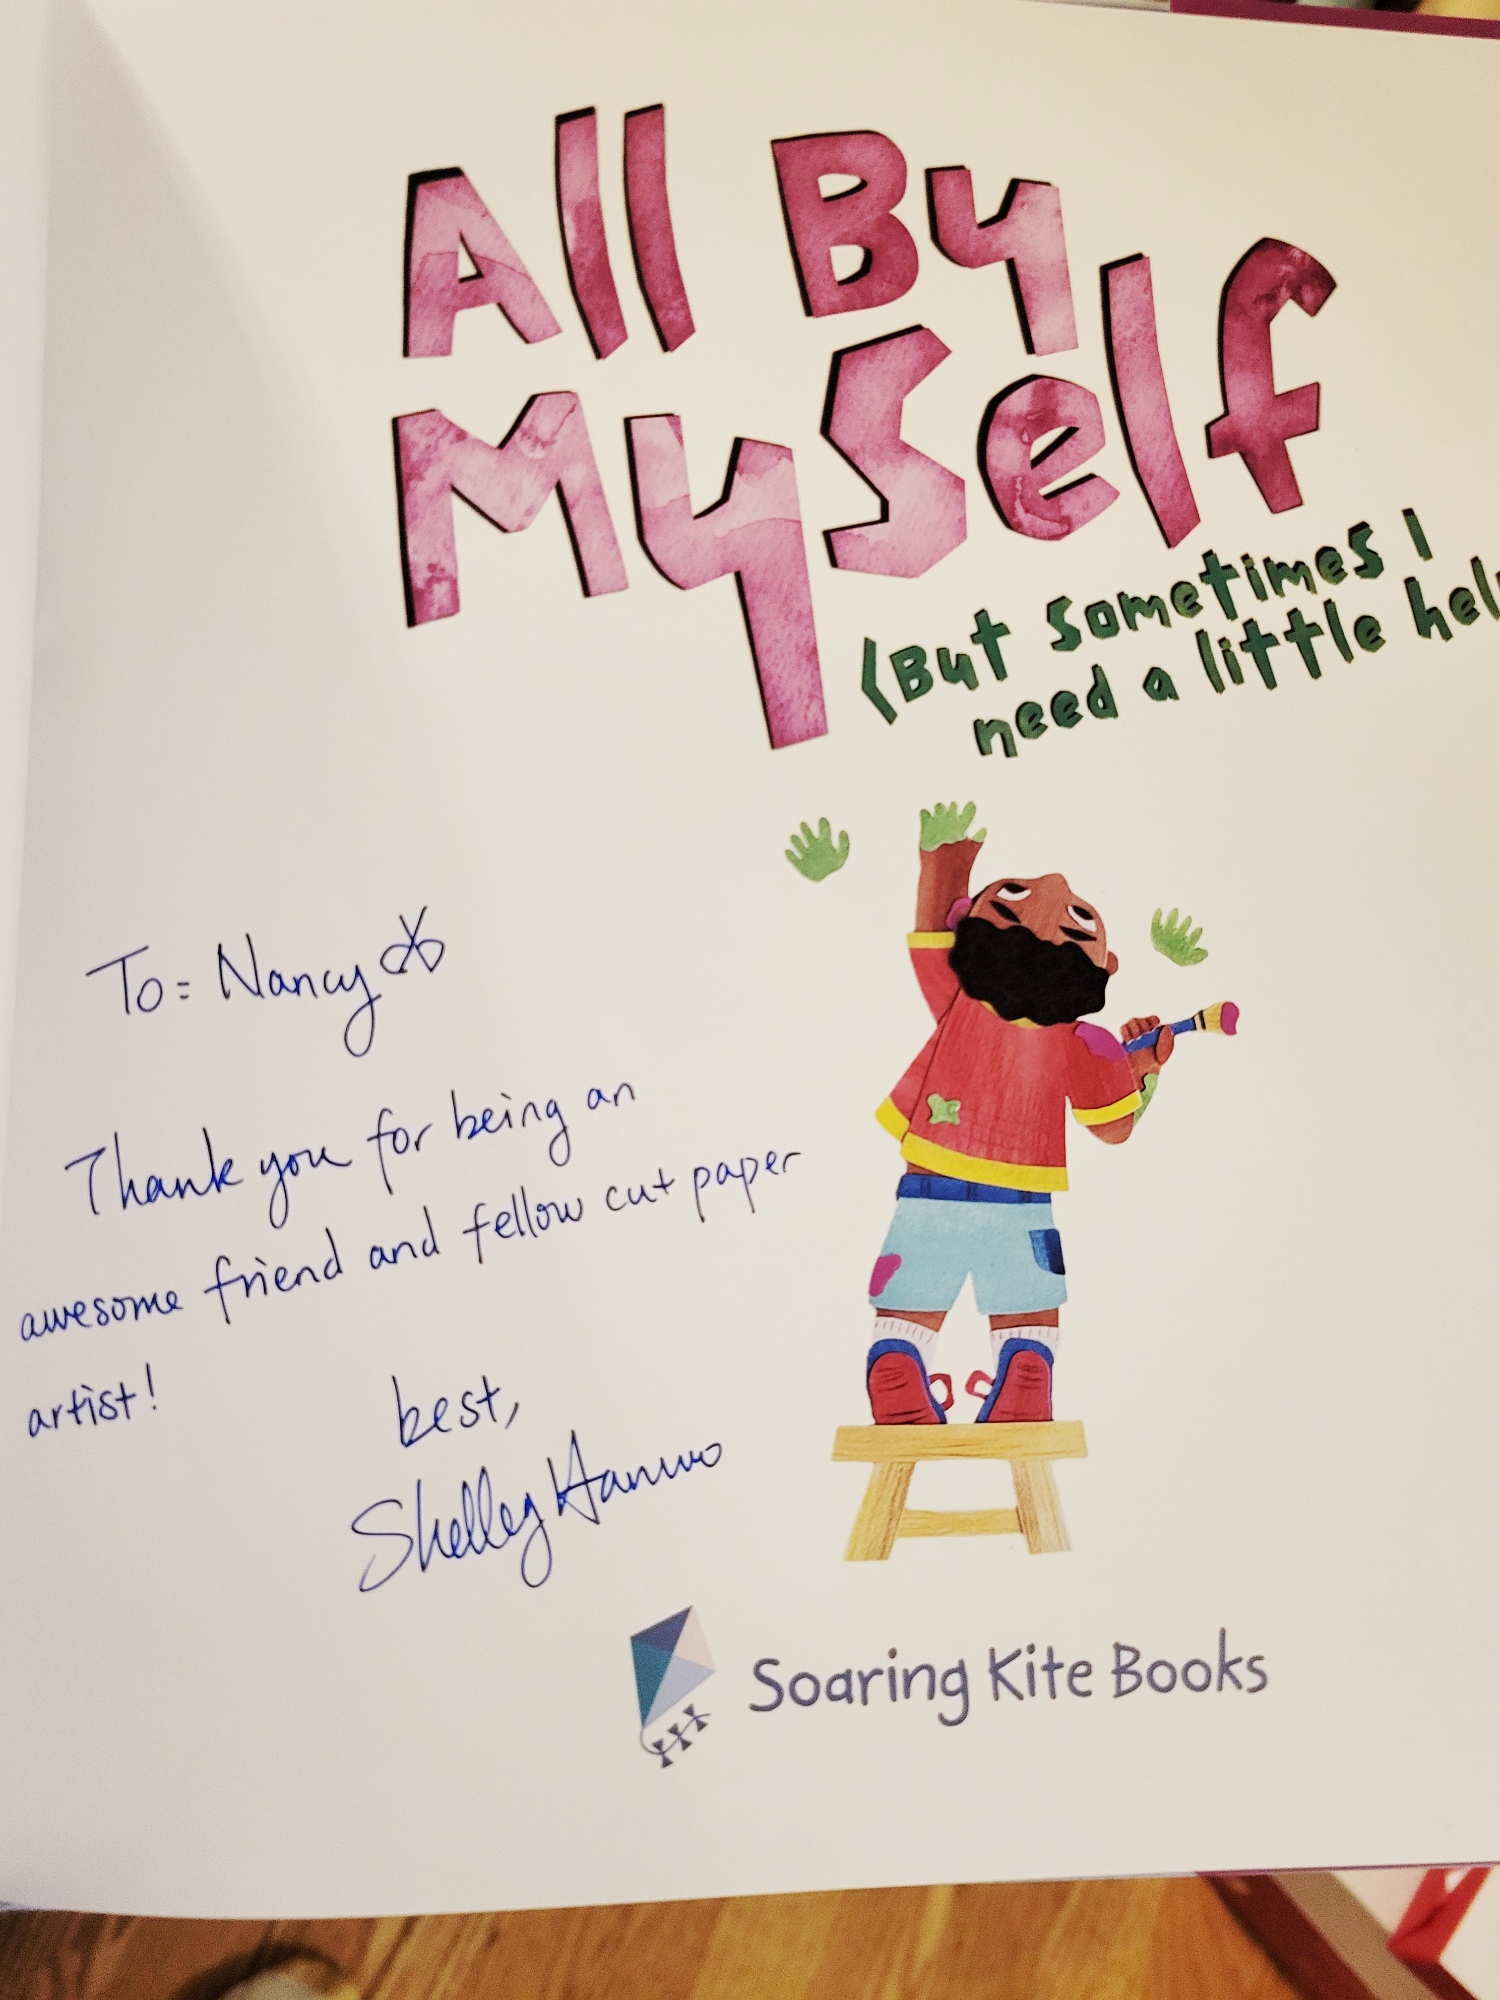 All By
Myself
(But sometimes I
need a little help
To: Nancy
Thank you for being an
awesome friend and fellow cut paper
artist!
best,
Shelley
Soaring Kite Books